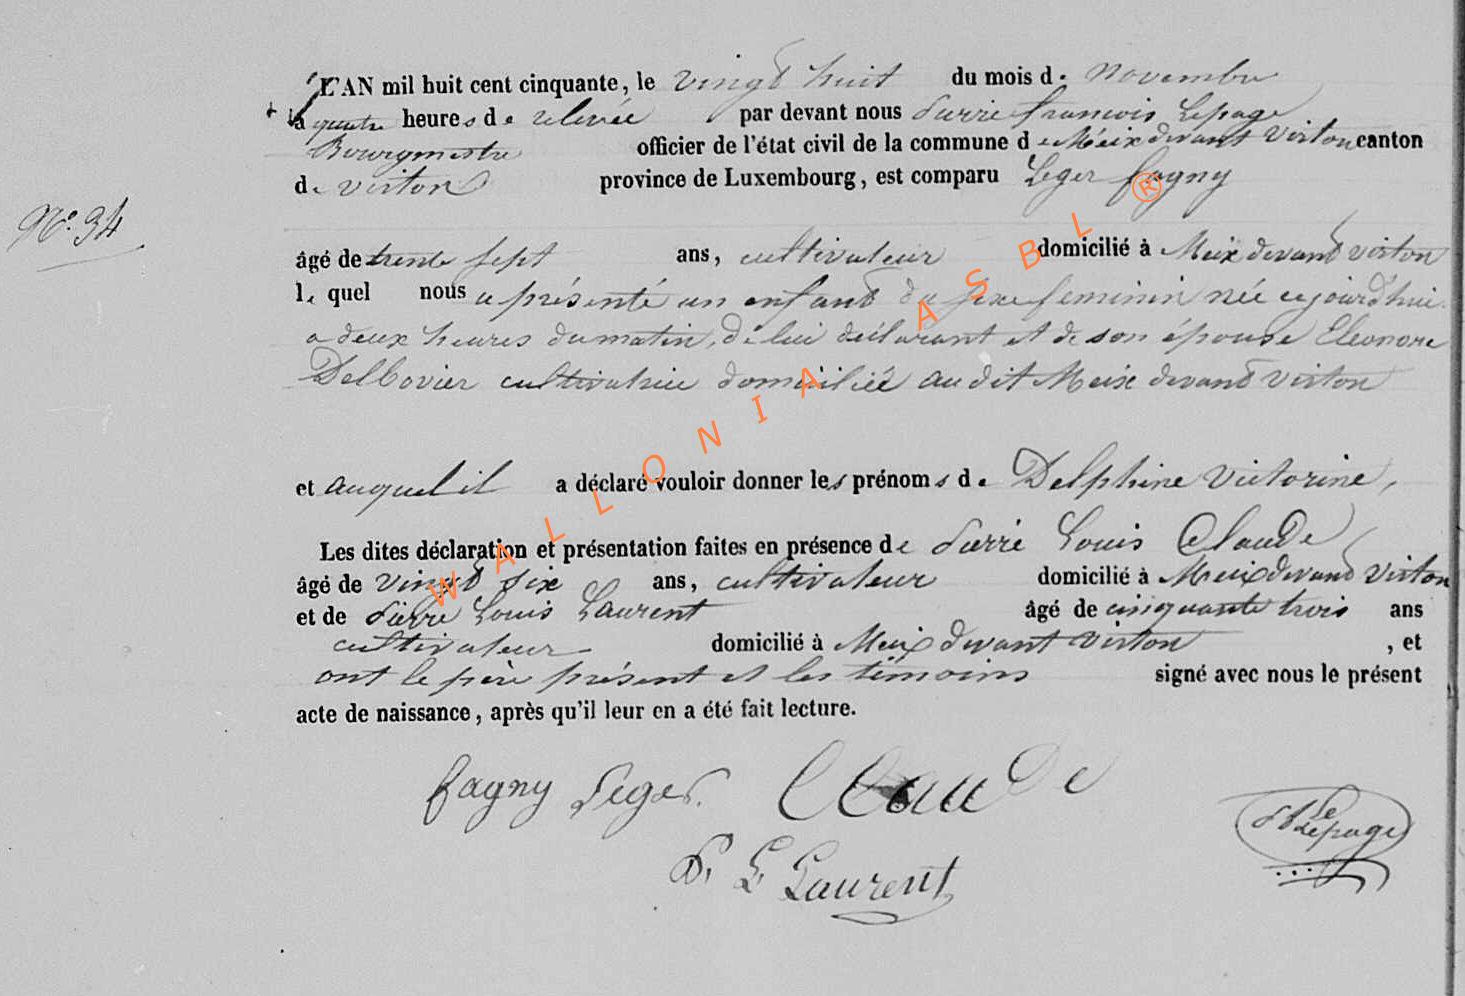 L'AN mil huit cent cinquante, le vingt huit du mois de novembre
à quatre heures de relevée par devant nous Pierre francois Lepage
Bourgmestre officier de l'état civil de la commune de Meix devant Virton canton
de virton province de Luxembourg, est comparu Leger fagny
N° 34
âgé de trente sept ans, cultivateur domicilié à Meix devant virton
le quel nous a présenté un enfant du sexe feminin née cejourd'hui
a deux heures du matin, de lui déclarant et de son épouse Eleonore
Delbovier cultivatrice domiciliée audit Meix devant virton
et auquel il a déclaré vouloir donner les prénoms de Delphine Victorine,
Les dites déclaration et présentation faites en présence de Pierre Louis Claude
âgé de vingt six ans, cultivateur domicilié à Meix devant Virton
et de Pierre Louis Laurent âgé de cinquante trois ans
cultivateur domicilié à Meix devant virton , et
ont le père présent et les témoins signé avec nous le présent
acte de naissance, après qu'il leur en a été fait lecture.
fagny Leger. Claude
Lepage
P. L. Laurent
WALLONIA ASBL ®